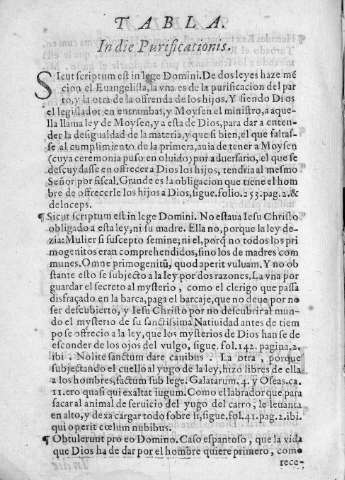 TABLA.
In die Purificationis.
Sicut scriptum est in lege Domini. De dos leyes haze mē
cion el Euangelista, la vna es de la purificacion del par
to, y la otra de la ofrenda de los hijos. Y siendo Dios
el legislador en entrambas, y Moysen el ministro, a aque
lla llama ley de Moysen, y a esta de Dios, para dar a enten-
der la desigualdad de la materia, y que si bien, el que faltas-
se al cumplimiento de la primera, auia de tener a Moysen
(cuya ceremonia puso en oluido) por aduersario, el que se
descuydasse en ofrecer a Dios los hijos, tendria al mesmo
Señor por fiscal. Grande es la obligacion que tiene el hom
bre de ofrecerle los hijos a Dios, sigue. folio. 253. pag. 2. &
deinceps.
¶ Sicut scriptum est in lege Domini. No estaua Iesu Christo
obligado a esta ley, ni su madre. Ella no, porque la ley de-
zia: Mulier si suscepto semine; ni el, porq̃ no todos los pri
mogenitos eran comprehendidos, sino los de madres com
munes. Omne primogenitū, quod aperit vuluam. Y no ob
stante esto se subjecto a la ley por dos razones. La vna por
guardar el secreto al mysterio, como el clerigo que passa
disfraçado en la barca, paga el barcaje, que no deue por no
ser descubierto, y Iesu Christo por no descubrir al mun-
do el mysterio de su sanctissima Natiuidad antes de tiem
po se ofrecio a la ley, que los mysterios de Dios han se de
esconder de los ojos del vulgo, sigue fol. 142. pagina. 2.
ibi, Nolite sanctum dare canibus. La otra, porque
subjectando el cuello al yugo de la ley, hizo libres de ella
a los hombres, factum sub lege. Galatarum. 4. y Oseas. ca.
11. ero quasi qui exaltat iugum. Como el labrador que para
sacar al animal de seruicio del yugo del carro, le leuanta
en alto, y dexa cargar todo sobre si, sigue. fol. 41. pag. 2. ibi.
qui operit cœlum nubibus.
¶ Obtulerunt pro eo Domino. Caso espantoso, que la vida
que Dios ha de dar por el hombre quiere primero, como
rece-